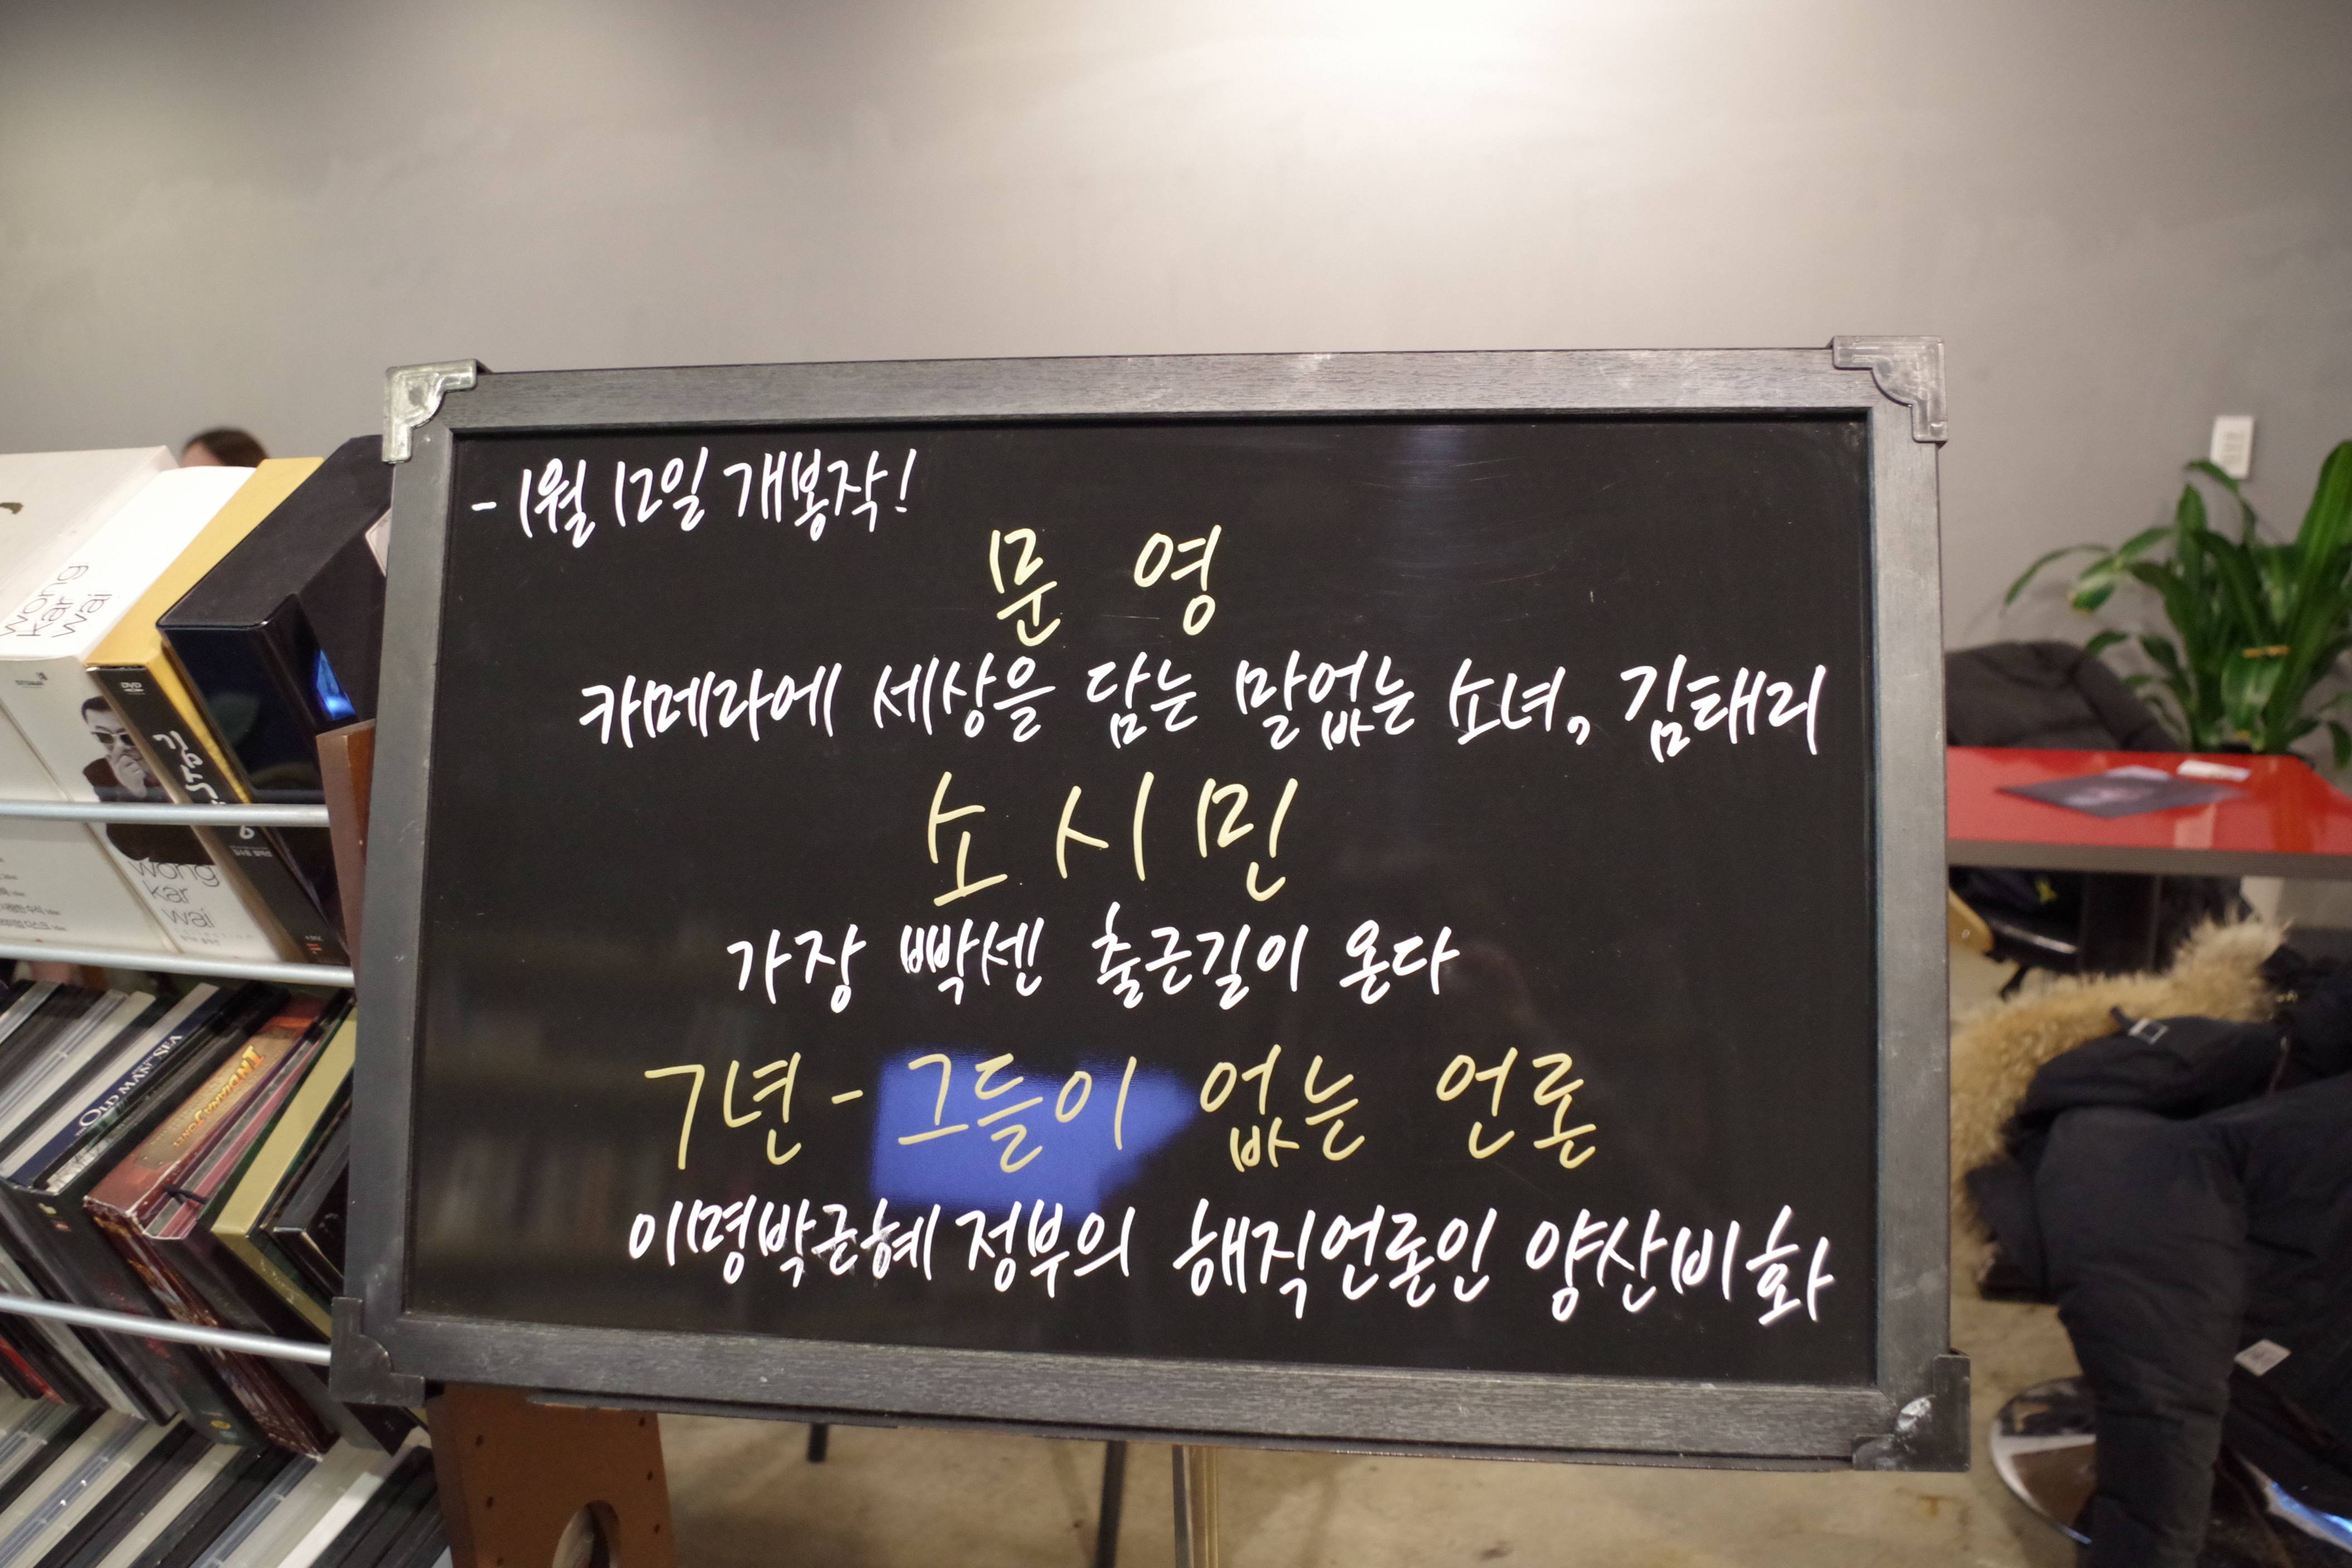 - 1월 12일 개봉작!
문 영
카메라에 세상을 담는 말없는 소녀, 김태리
소 시 민
가장 빡센 출근길이 온다
7년 - 그들이 없는 언론
이명박근혜 정부의 해직언론인 양산비화
wong
kar
wai
DVD
wong
kar
wai
THE OLD MAN AND THE SEA
INDIANA JONES